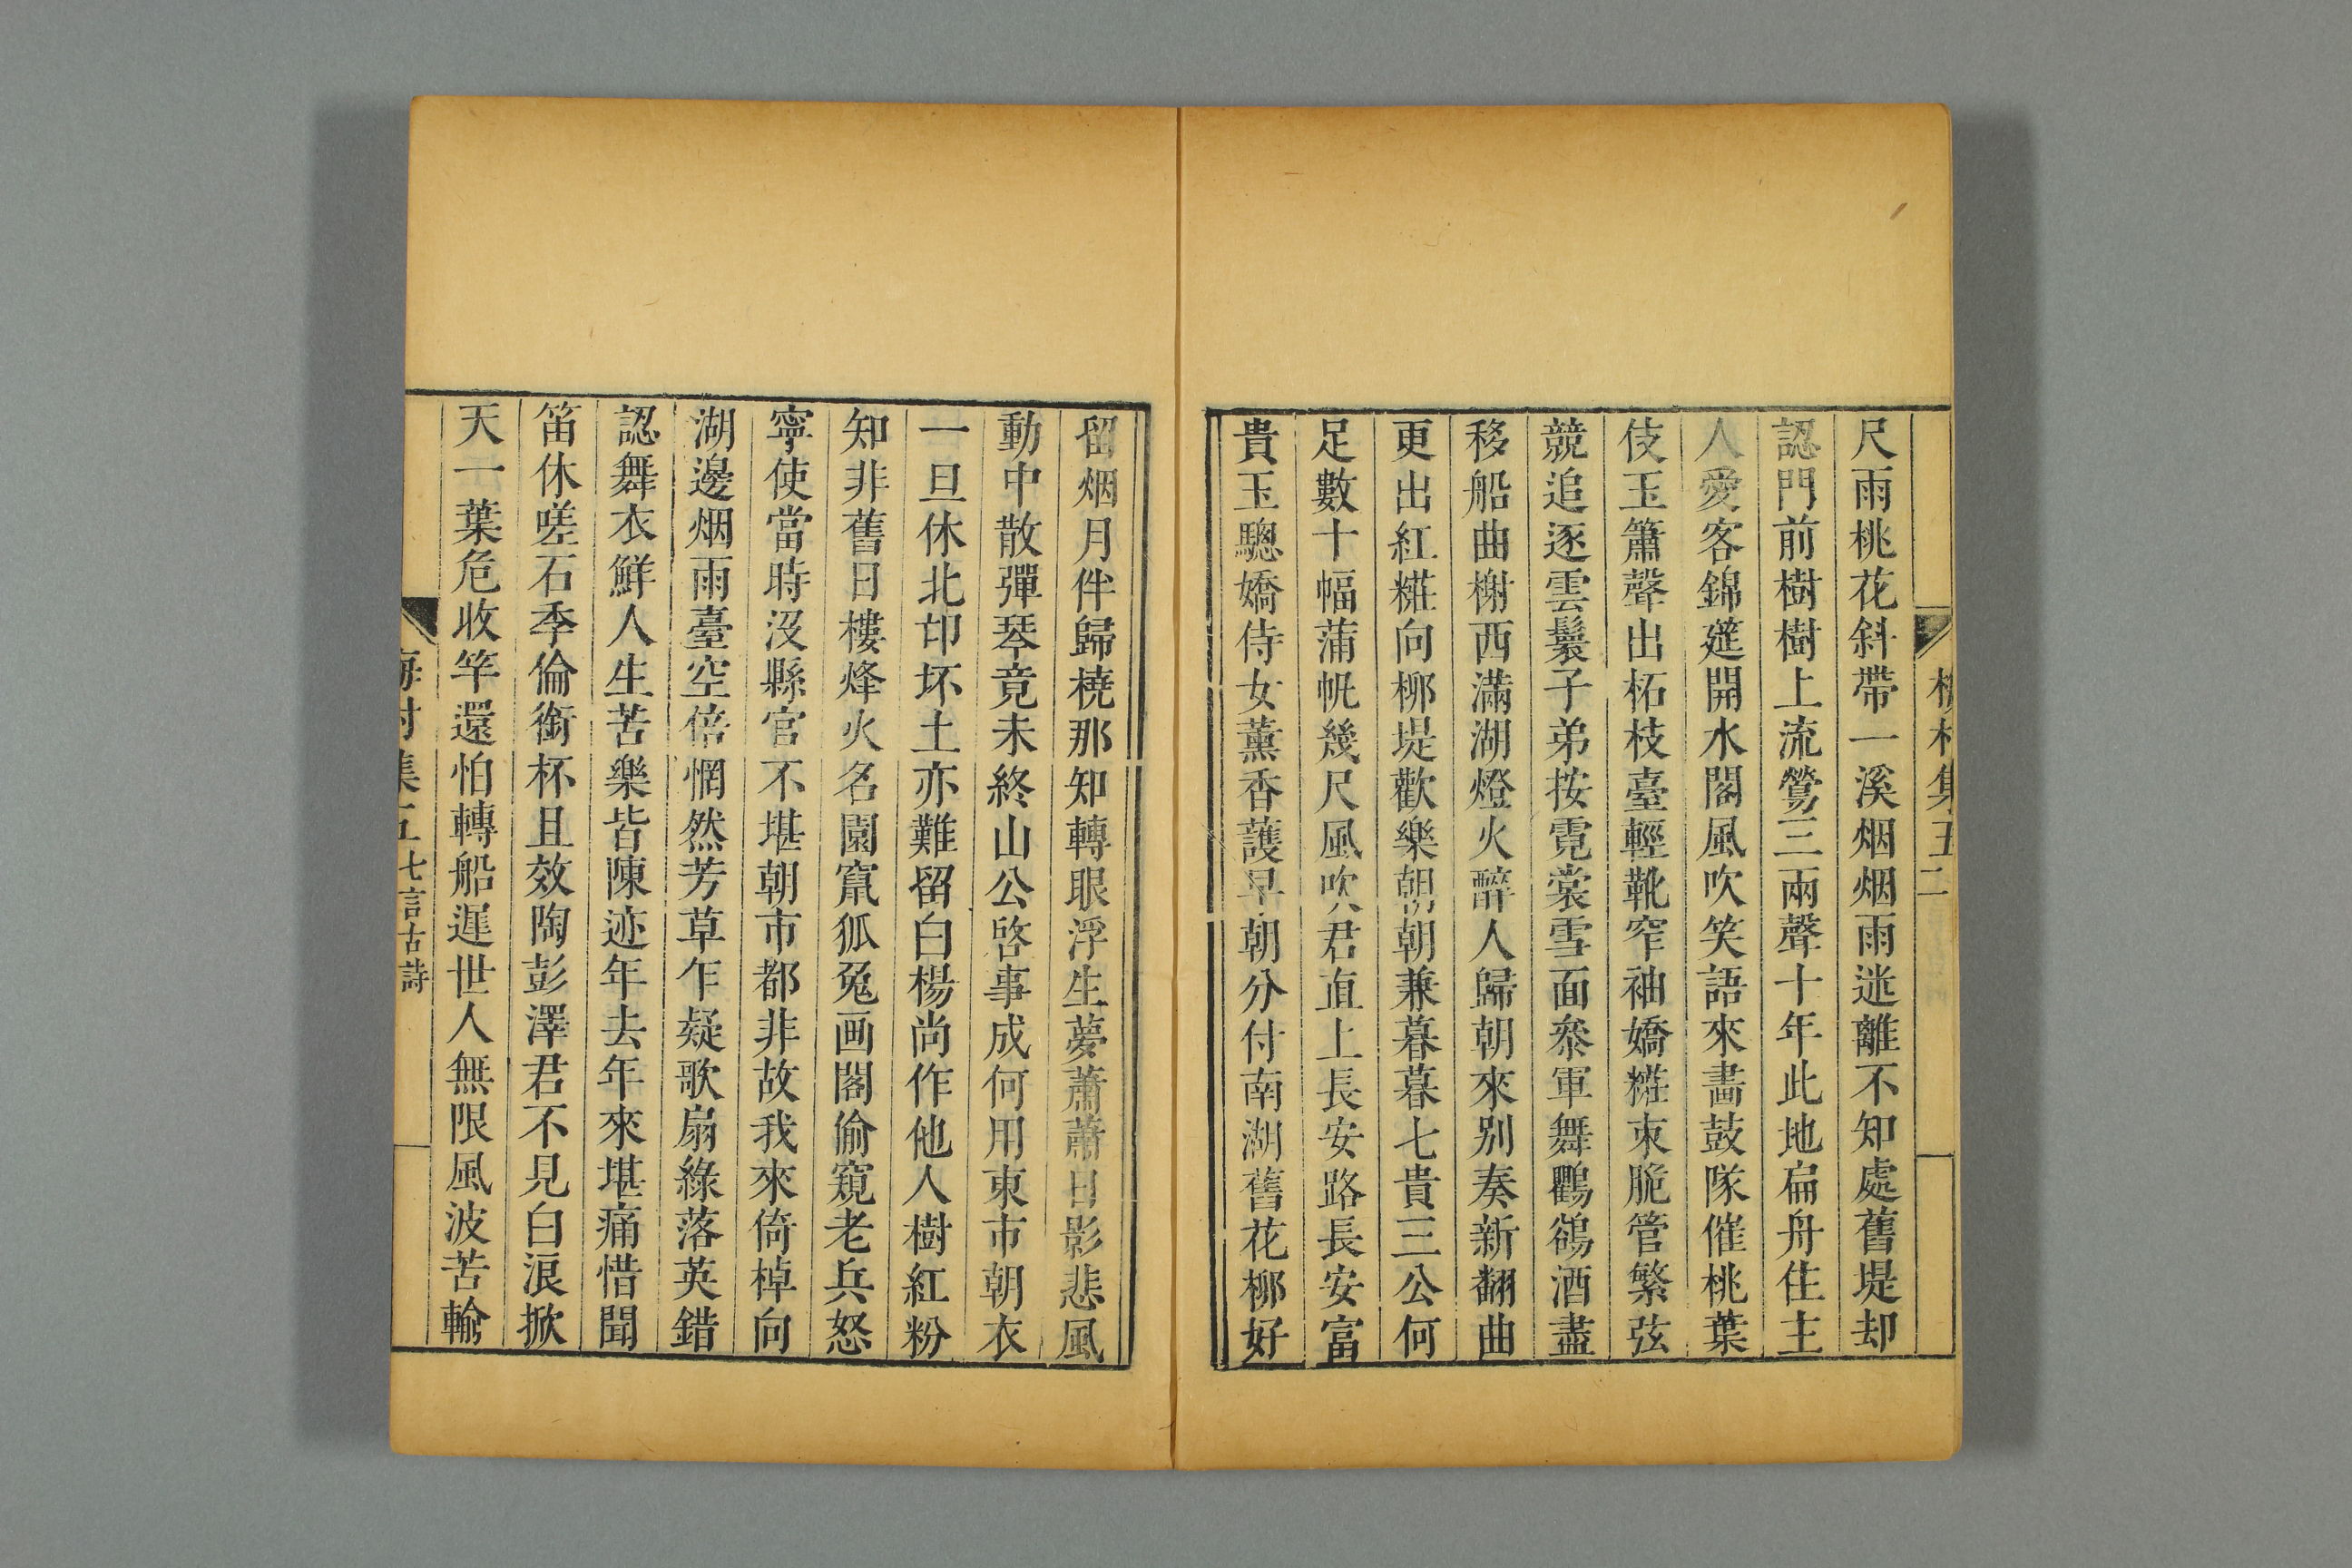 梅村集五 二
尺雨桃花斜帶一溪烟烟雨迷離不知處舊堤却
認門前樹樹上流鶯三兩聲十年此地扁舟住主
人愛客錦筵開水閣風吹笑語來畵鼓隊催桃葉
伎玉簫聲出柘枝臺輕靴窄袖嬌糚束脆管繁弦
競追逐雲鬟子弟按霓裳雪面參軍舞鸜鵒酒盡
移船曲榭西滿湖燈火醉人歸朝來别奏新翻曲
更出紅糚向柳堤歡樂朝朝兼暮暮七貴三公何
足數十幅蒲帆幾尺風吹君直上長安路長安富
貴玉驄嬌侍女薰香護早朝分付南湖舊花柳好
留烟月伴歸橈那知轉眼浮生夢蕭蕭日影悲風
動中散彈琴竟未終山公啓事成何用東市朝衣
一旦休北邙坏土亦難留白楊尚作他人樹紅粉
知非舊日樓烽火名園竄狐兔画閣偷窺老兵怒
寧使當時沒縣官不堪朝市都非故我來倚棹向
湖邊烟雨臺空倍惘然芳草乍疑歌扇綠落英錯
認舞衣鮮人生苦樂皆陳迹年去年來堪痛惜聞
笛休嗟石季倫銜杯且效陶彭澤君不見白浪掀
天一葉危收竿還怕轉船遲世人無限風波苦輸
梅村集五 七言古詩